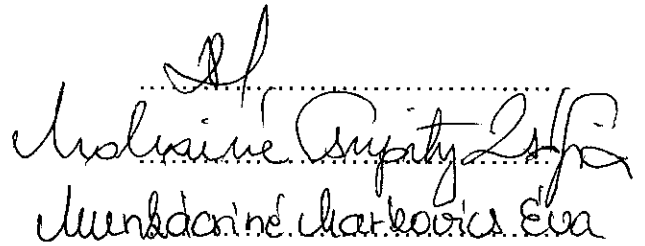 Csupity Zsófia
Munkácsiné Markovics Éva